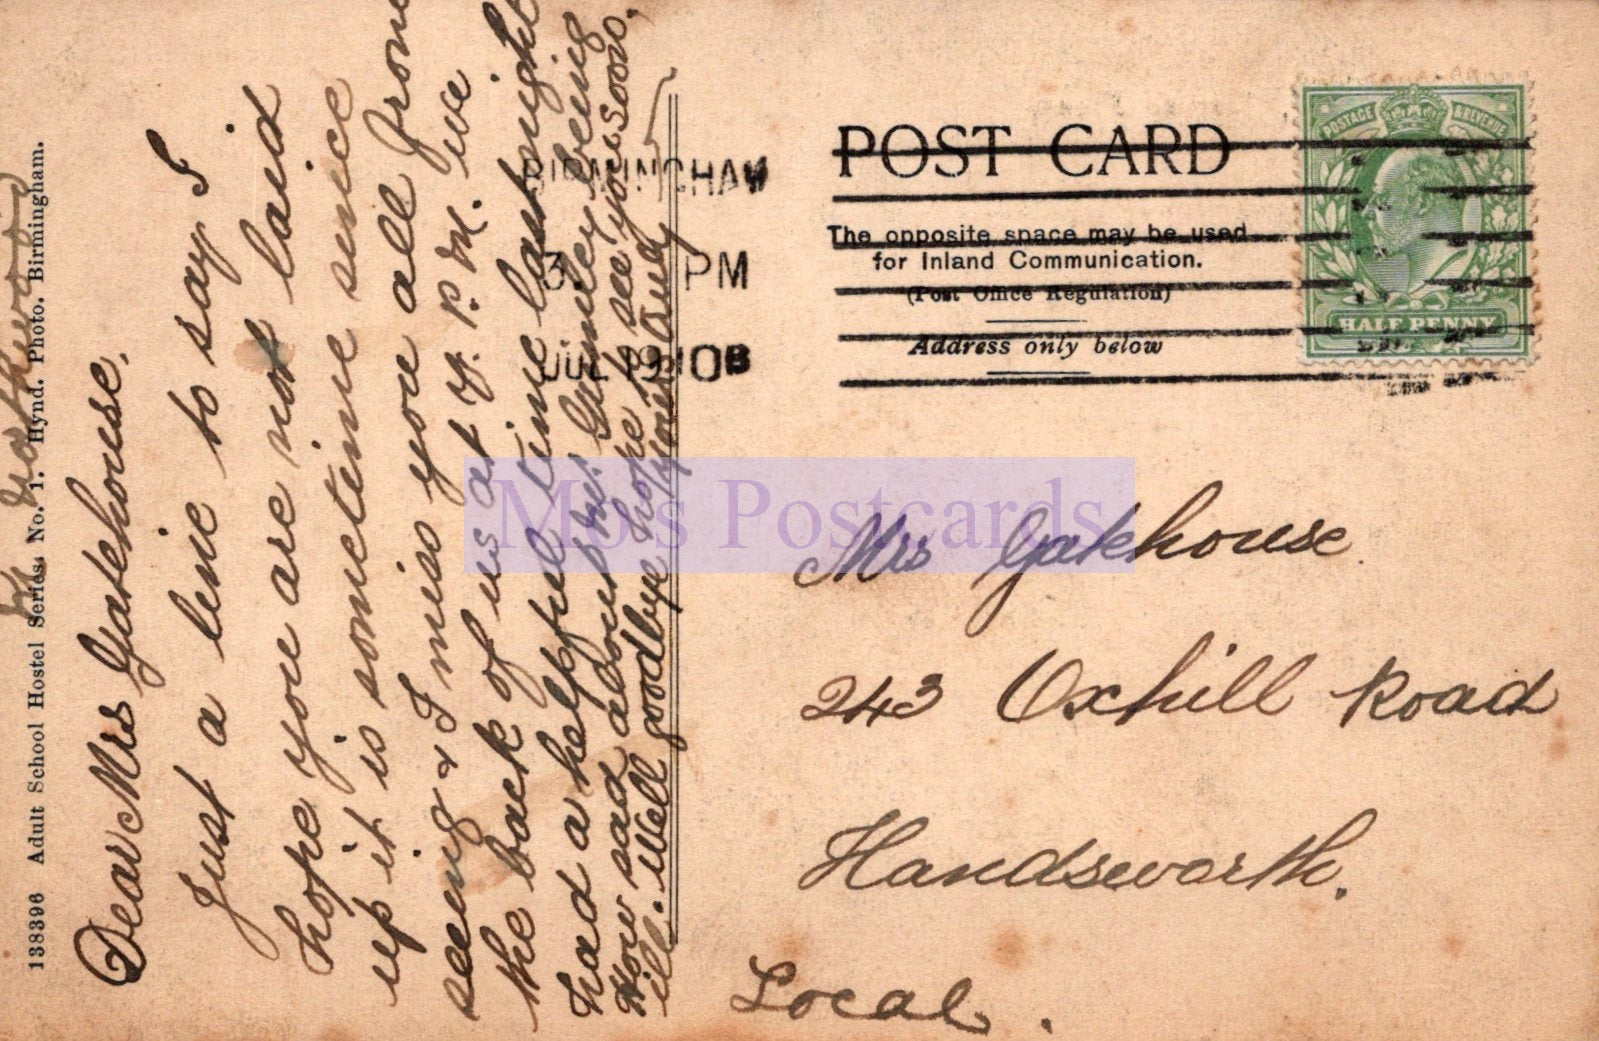 Dear Mrs Gatehouse.
Just a line to say I
hope you are not laid
up it is sometime since
seeing & I miss you all from
the back of us at Y. P. M. we
had a helpful time last night
How sad about Mr. Gumley being
ill. Well goodbye hope to see you soon.
Yours
138396 Adult School Hostel Series. No. 1. Hynd. Photo. Birmingham.
BIRMINGHAM
3. PM
JUL 19 10B
POST CARD
The opposite space may be used
for Inland Communication.
(Post Office Regulation)
Address only below
POSTAGE & REVENUE
HALF PENNY
Mrs Gatehouse
243 Oxhill Road
Handsworth.
Local.
Mo's Postcards